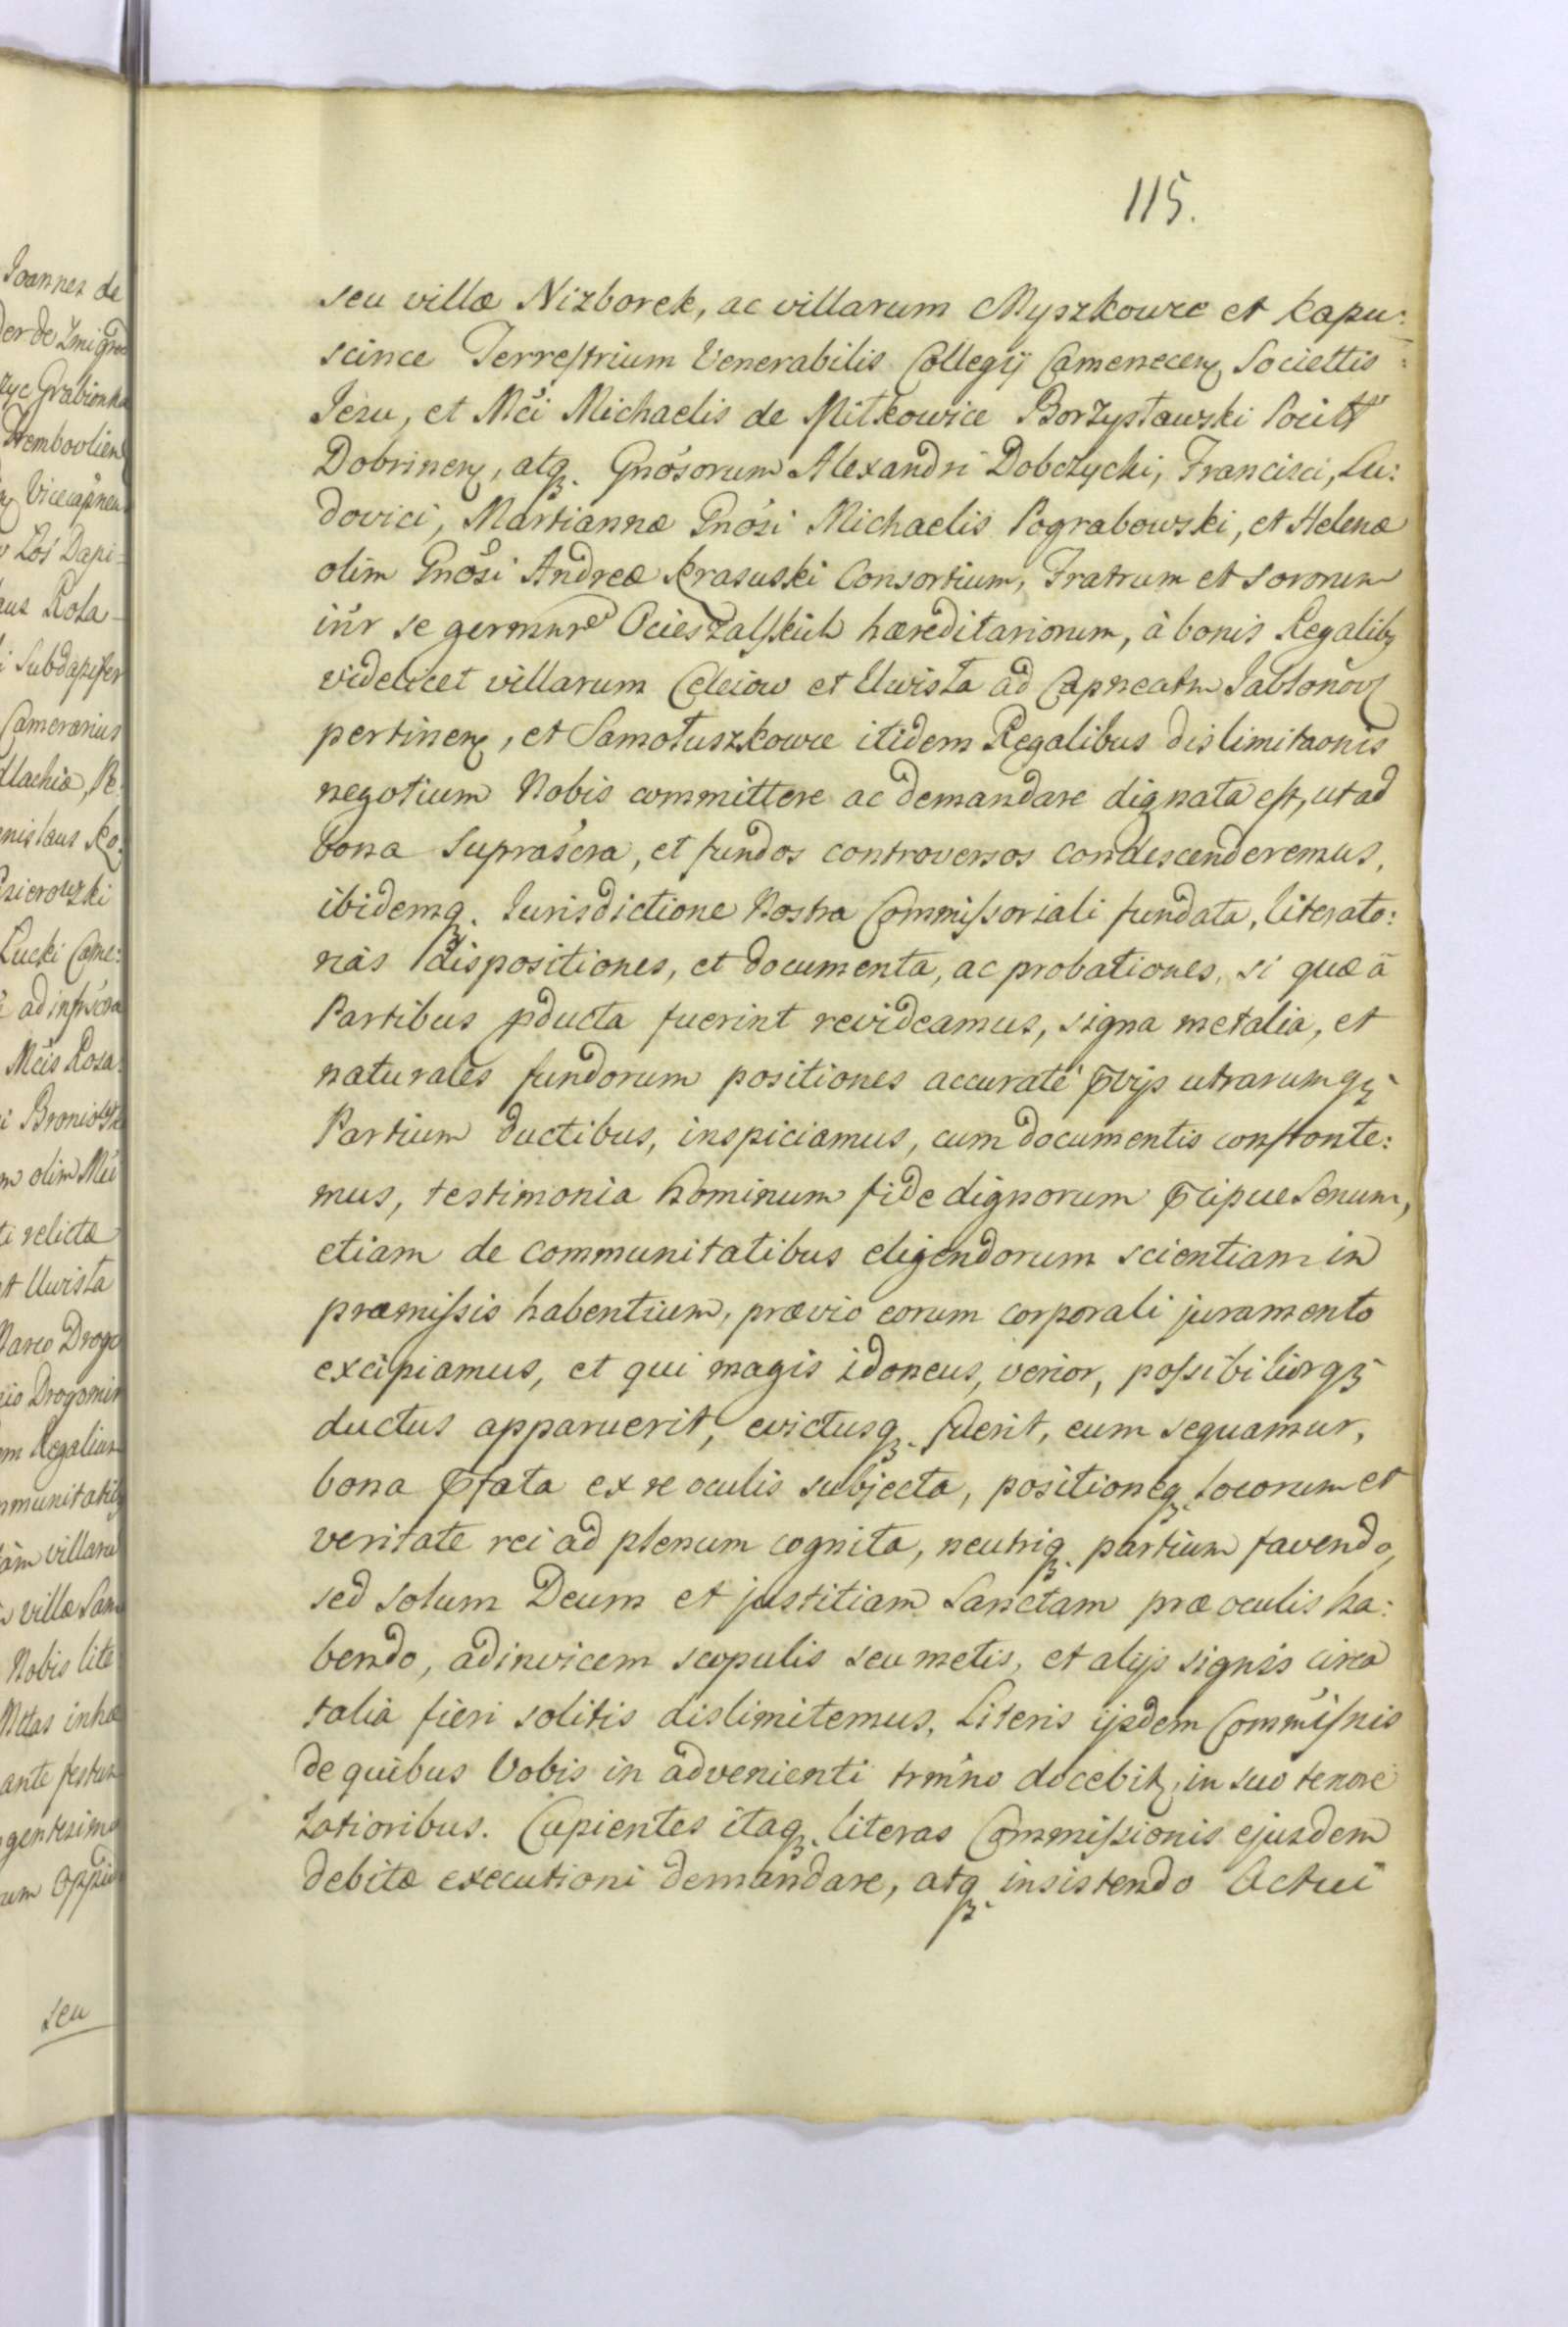 115.
seu villæ Nizborek, ac villarum Myszkowce et Kapu:
scince Terrestrium Venerabilis Collegij Camenecen. Societtis
Jesu, et Mći Michaelis de Mitkowice Borzysławski
Dobrinen, atq. Gnósorum Alexandri Dobczycki, Francisci, Lu:
dovici, Martiannæ Gnósi Michaelis Pograbowski, et Helenæ
olim Gnósi Andreæ Krasuski Consortium, Fratrum et Sororum
intr se germnre Ocieszalskich hæreditariorum, à bonis Regalibq
videlicet villarum Celeiow et Uwisła ad Capneatm Jabłonov
pertinen, et Samołuszkowce itidem Regalibus dislimitaonis
negotium Nobis committere ac demandare dignata est, ut ad
bona Suprascra, et fundos controversos condescenderemus,
ibidemq. Jurisdictione Nostra Commissoriali fundata, literato:
rias dispositiones, et documenta, ac probationes, si quæ à
Partibus pducta fuerint revideamus, signa metalia, et
naturales fundorum positiones accuratè pvijs utrarumq3
Partium ductibus, inspiciamus, cum documentis confronte:
mus, testimonia hominum fide dignorum pcipue Senum,
etiam de communitatibus eligendorum scientiam in
præmissis habentium, prævio eorum corporali juramento
excipiamus, et qui magis idoneus, verior, possibiliorq3
ductus apparuerit, evictusq. fuerit, eum sequamur,
bona pfata ex re oculis subjecta, positioneq. locorum et
veritate rei ad plenum cognita, neutriq. partium favendo,
sed solum Deum et justitiam Sanctam præ oculis ha:
bendo, adinvicem scopulis seu metis, et alijs signis circa
talia fieri solitis dislimitemus, Literis ijsdem Commisnis
de quibus Vobis in advenienti trmno docebit, in suo tenore
latioribus. Cupientes itaq. literas Commissionis ejusdem
debitæ executioni demandare, atq. insistendo Actui
seu